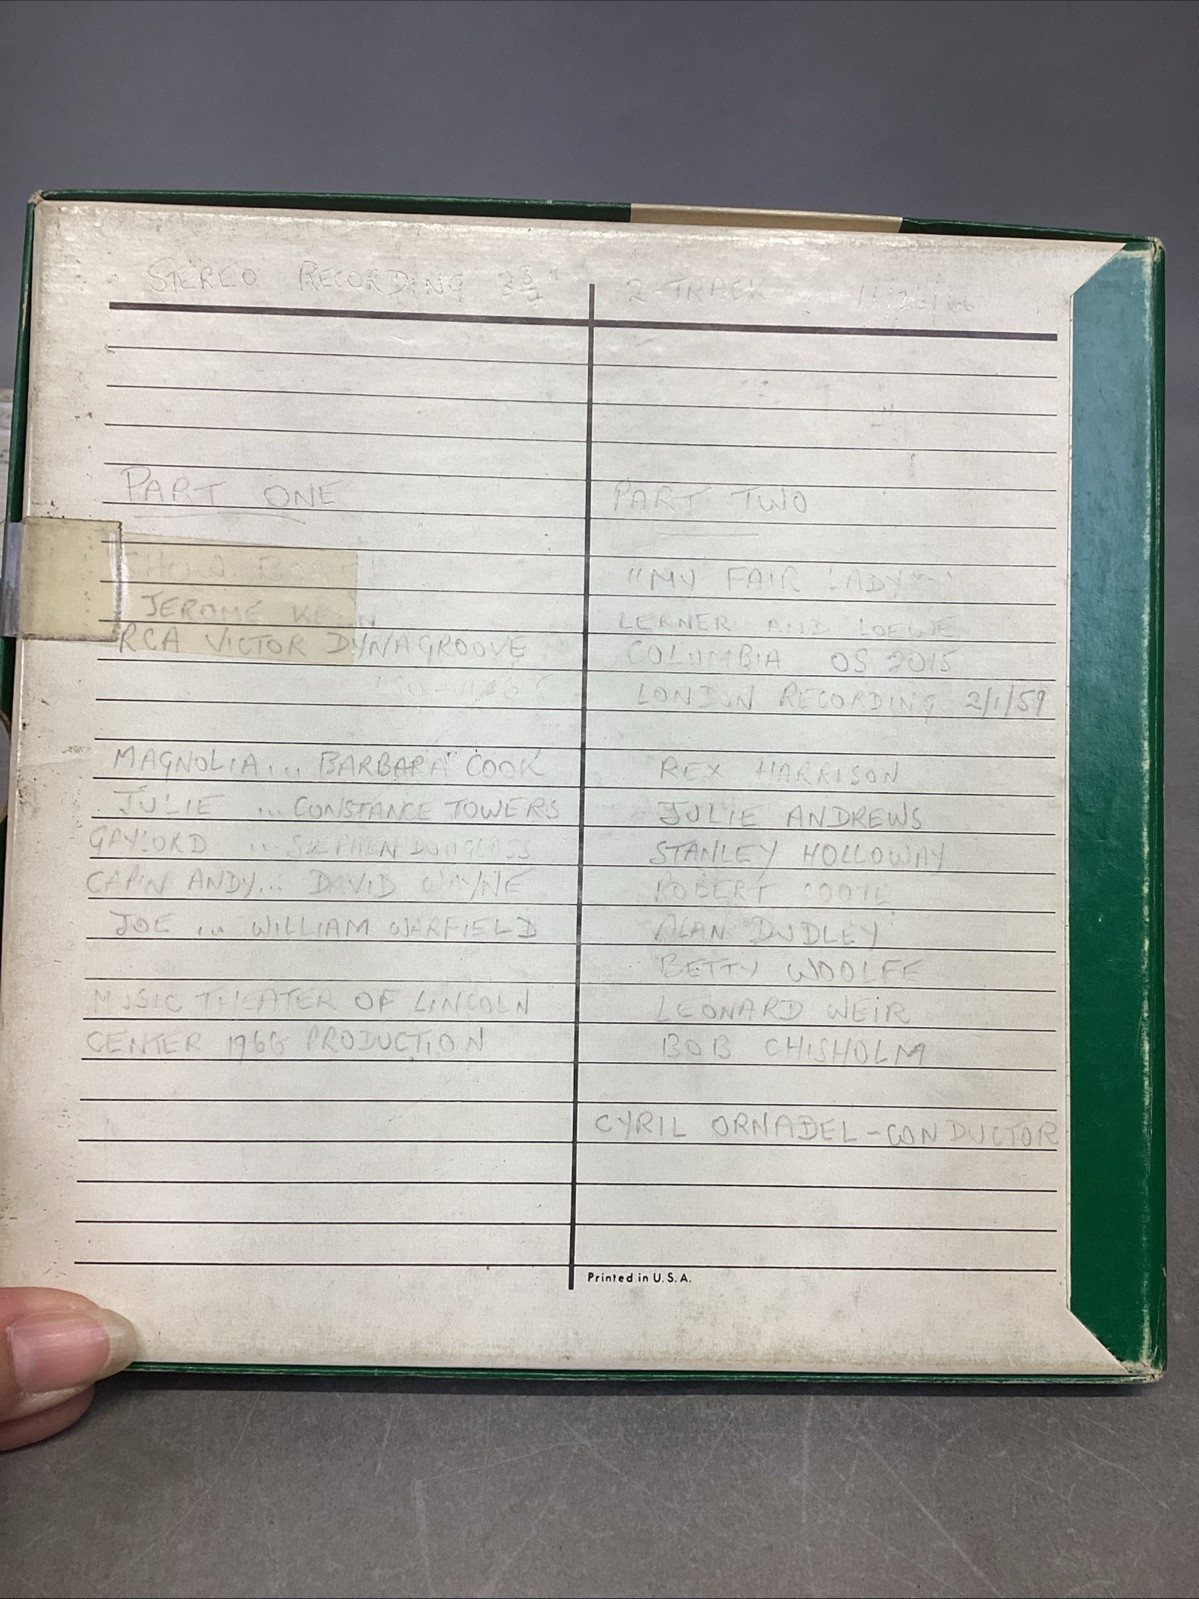 STEREO RECORDING 3¾" 2-TRACK
PART ONE
SHOW BOAT
JEROME KERN
RCA VICTOR DYNAGROOVE
MAGNOLIA... BARBARA COOK
JULIE ... CONSTANCE TOWERS
GAYLORD ... STEPHEN DOUGLASS
CAP'N ANDY... DAVID WAYNE
JOE ... WILLIAM WARFIELD
MUSIC THEATER OF LINCOLN
CENTER 1966 PRODUCTION
PART TWO
"MY FAIR LADY"
LERNER AND LOEWE
COLUMBIA OS 2015
LONDON RECORDING 2/1/59
REX HARRISON
JULIE ANDREWS
STANLEY HOLLOWAY
ROBERT COOTE
ALAN DUDLEY
BETTY WOOLFE
LEONARD WEIR
BOB CHISHOLM
CYRIL ORNADEL - CONDUCTOR
Printed in U.S.A.